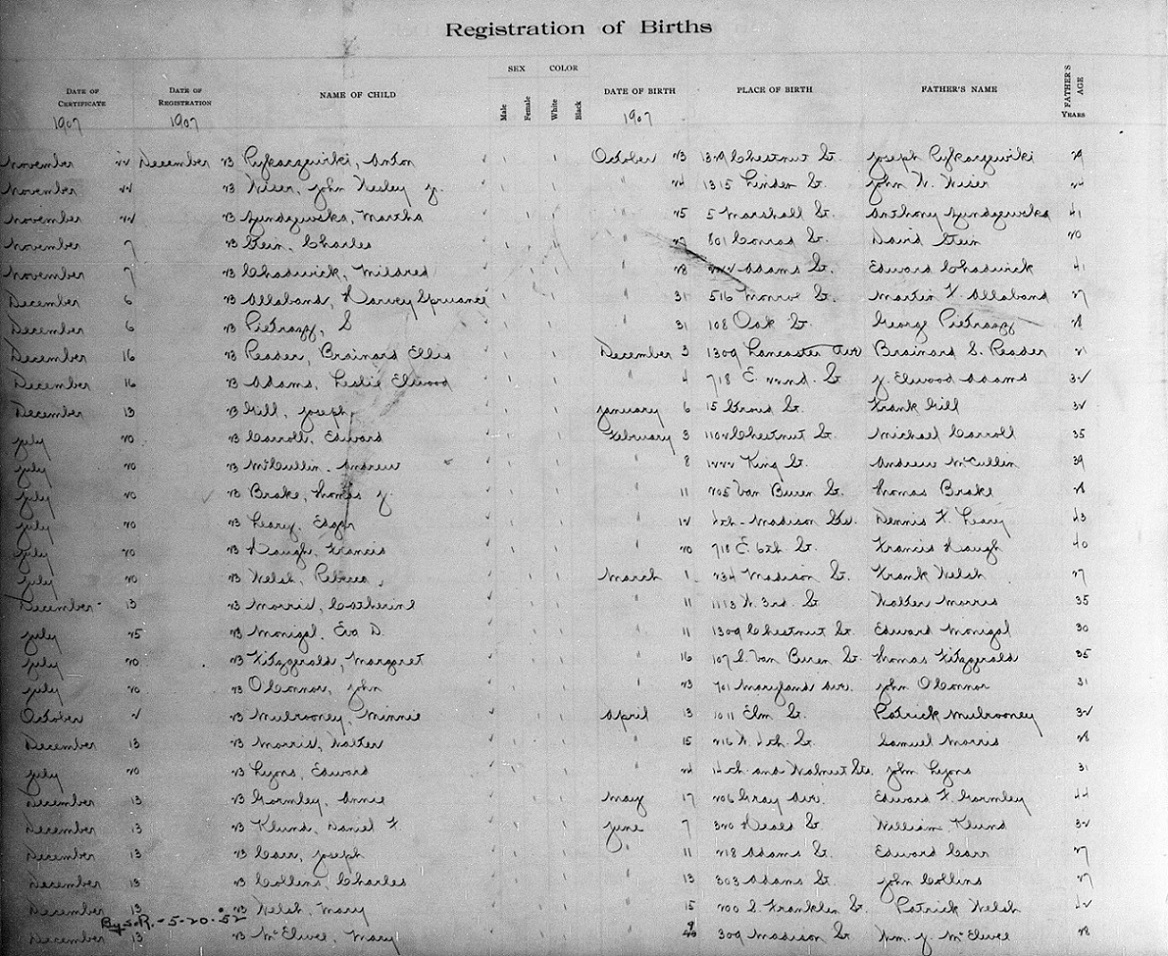 Registration of Births
DATE OF CERTIFICATE DATE OF REGISTRATION NAME OF CHILD SEX Male Female COLOR White Black DATE OF BIRTH PLACE OF BIRTH FATHER'S NAME FATHER'S AGE YEARS
1907 1907 1907
November 22 December 23 Rykaczewski, Anton October 23 Chestnut St. Joseph Rykaczewski 29
November 22 23 Wiser, John Wesley Jr. " 24 1315 Linden St. John W. Wiser 24
November 22 23 Martha " 25 5 Marshall St. Anthony 41
November 7 23 Stein, Charles " 27 801 Conrad St. David Stein 20
November 7 23 Chadwick, Mildred " 28 Adams St. Edward Chadwick 41
December 6 23 Allaband, Harvey Spruance " 31 516 Monroe St. Martin F. Allaband 27
December 6 23 S " 31 108 Oak St. George
December 16 23 Reader, Brainard Ellis December 3 1309 Lancaster Ave Brainard S. Reader 21
December 16 23 Adams, Leslie Elwood " 4 718 E. 22nd. St J. Elwood Adams 32
December 13 23 Gill, Joseph January 6 15 St. Frank Gill 32
July 20 23 Carroll, Edward February 3 1102 Chestnut St. Michael Carroll 35
July 20 23 McCullin, Andrew " 8 1222 King St. Andrew McCullen 39
July 20 23 Brake, Thomas J. " 11 205 Van Buren St. Thomas Brake
July 20 23 Leary, Edgar " 12 4th - Madison Sts. Dennis F. Leary 43
July 20 23 Haugh, Francis " 20 718 E. 6th St. Francis Haugh 40
July 20 23 Welsh, Rebecca March 1 234 Madison St. Frank Welsh 27
December 13 23 Morris, Catherine " 11 1113 W. 3rd. St Walter Morris 35
July 25 23 Monigal, Eva D. " 11 1309 Chestnut St. Edward Monigal 30
July 20 23 Fitzgerald, Margaret " 16 107 S. Van Buren St. Thomas Fitzgerald 35
July 20 23 O'Connor, John " 23 701 Maryland Ave. John O'Connor 31
October 2 23 Mulrooney, Minnie April 13 1011 Elm St. Patrick Mulrooney 32
December 13 23 Morris, Walter " 15 216 W. 4th. St. Samuel Morris 28
July 20 23 Lyons, Edward " 24 14th and Walnut Sts. John Lyons 31
December 13 23 Gormley, Annie May 17 206 Gray Ave. Edward F. Gormley 44
December 13 23 Klund, Daniel F. June 7 320 St William Klund 32
December 13 23 Carr, Joseph " 11 218 Adams St. Edward Carr 27
December 13 23 Collins, Charles " 13 303 Adams St. John Collins 27
December 13 23 Welsh, Mary " 15 200 S. Franklin St. Patrick Welsh 42
By S.R. - 5-20-52
December 13 23 McElwee, Mary " 309 Madison St Wm. J. McElwee 28